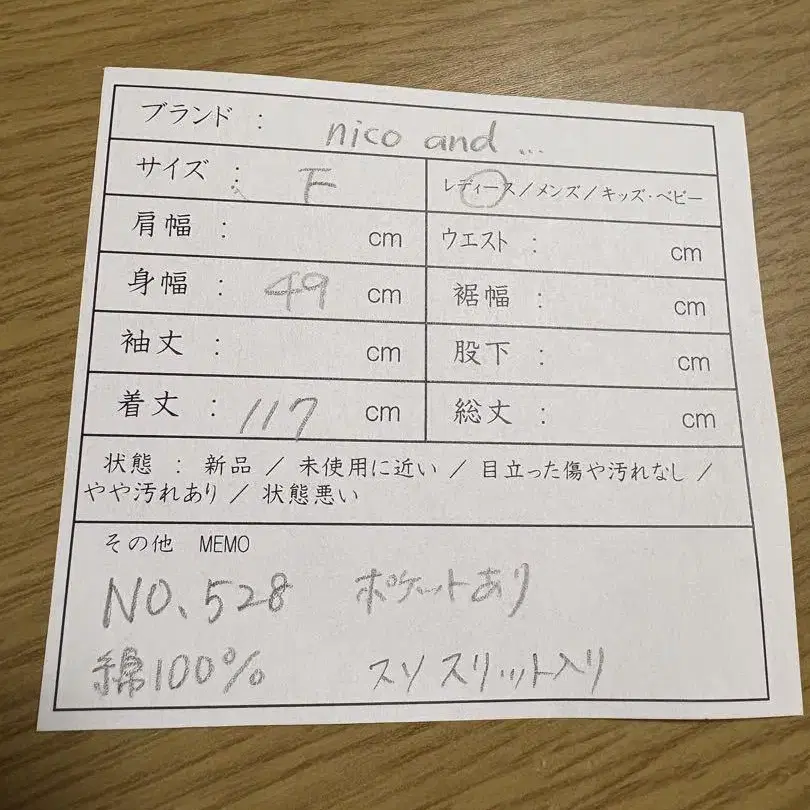 ブランド : nico and ...
サイズ : F レディース/メンズ/キッズ・ベビー
肩幅 : cm ウエスト : cm
身幅 : 49 cm 裾幅 : cm
袖丈 : cm 股下 : cm
着丈 : 117 cm 総丈 : cm
状態 : 新品 / 未使用に近い / 目立った傷や汚れなし /
やや汚れあり / 状態悪い
その他 MEMO
NO、528 ポケットあり
綿100% スソ スリット入り